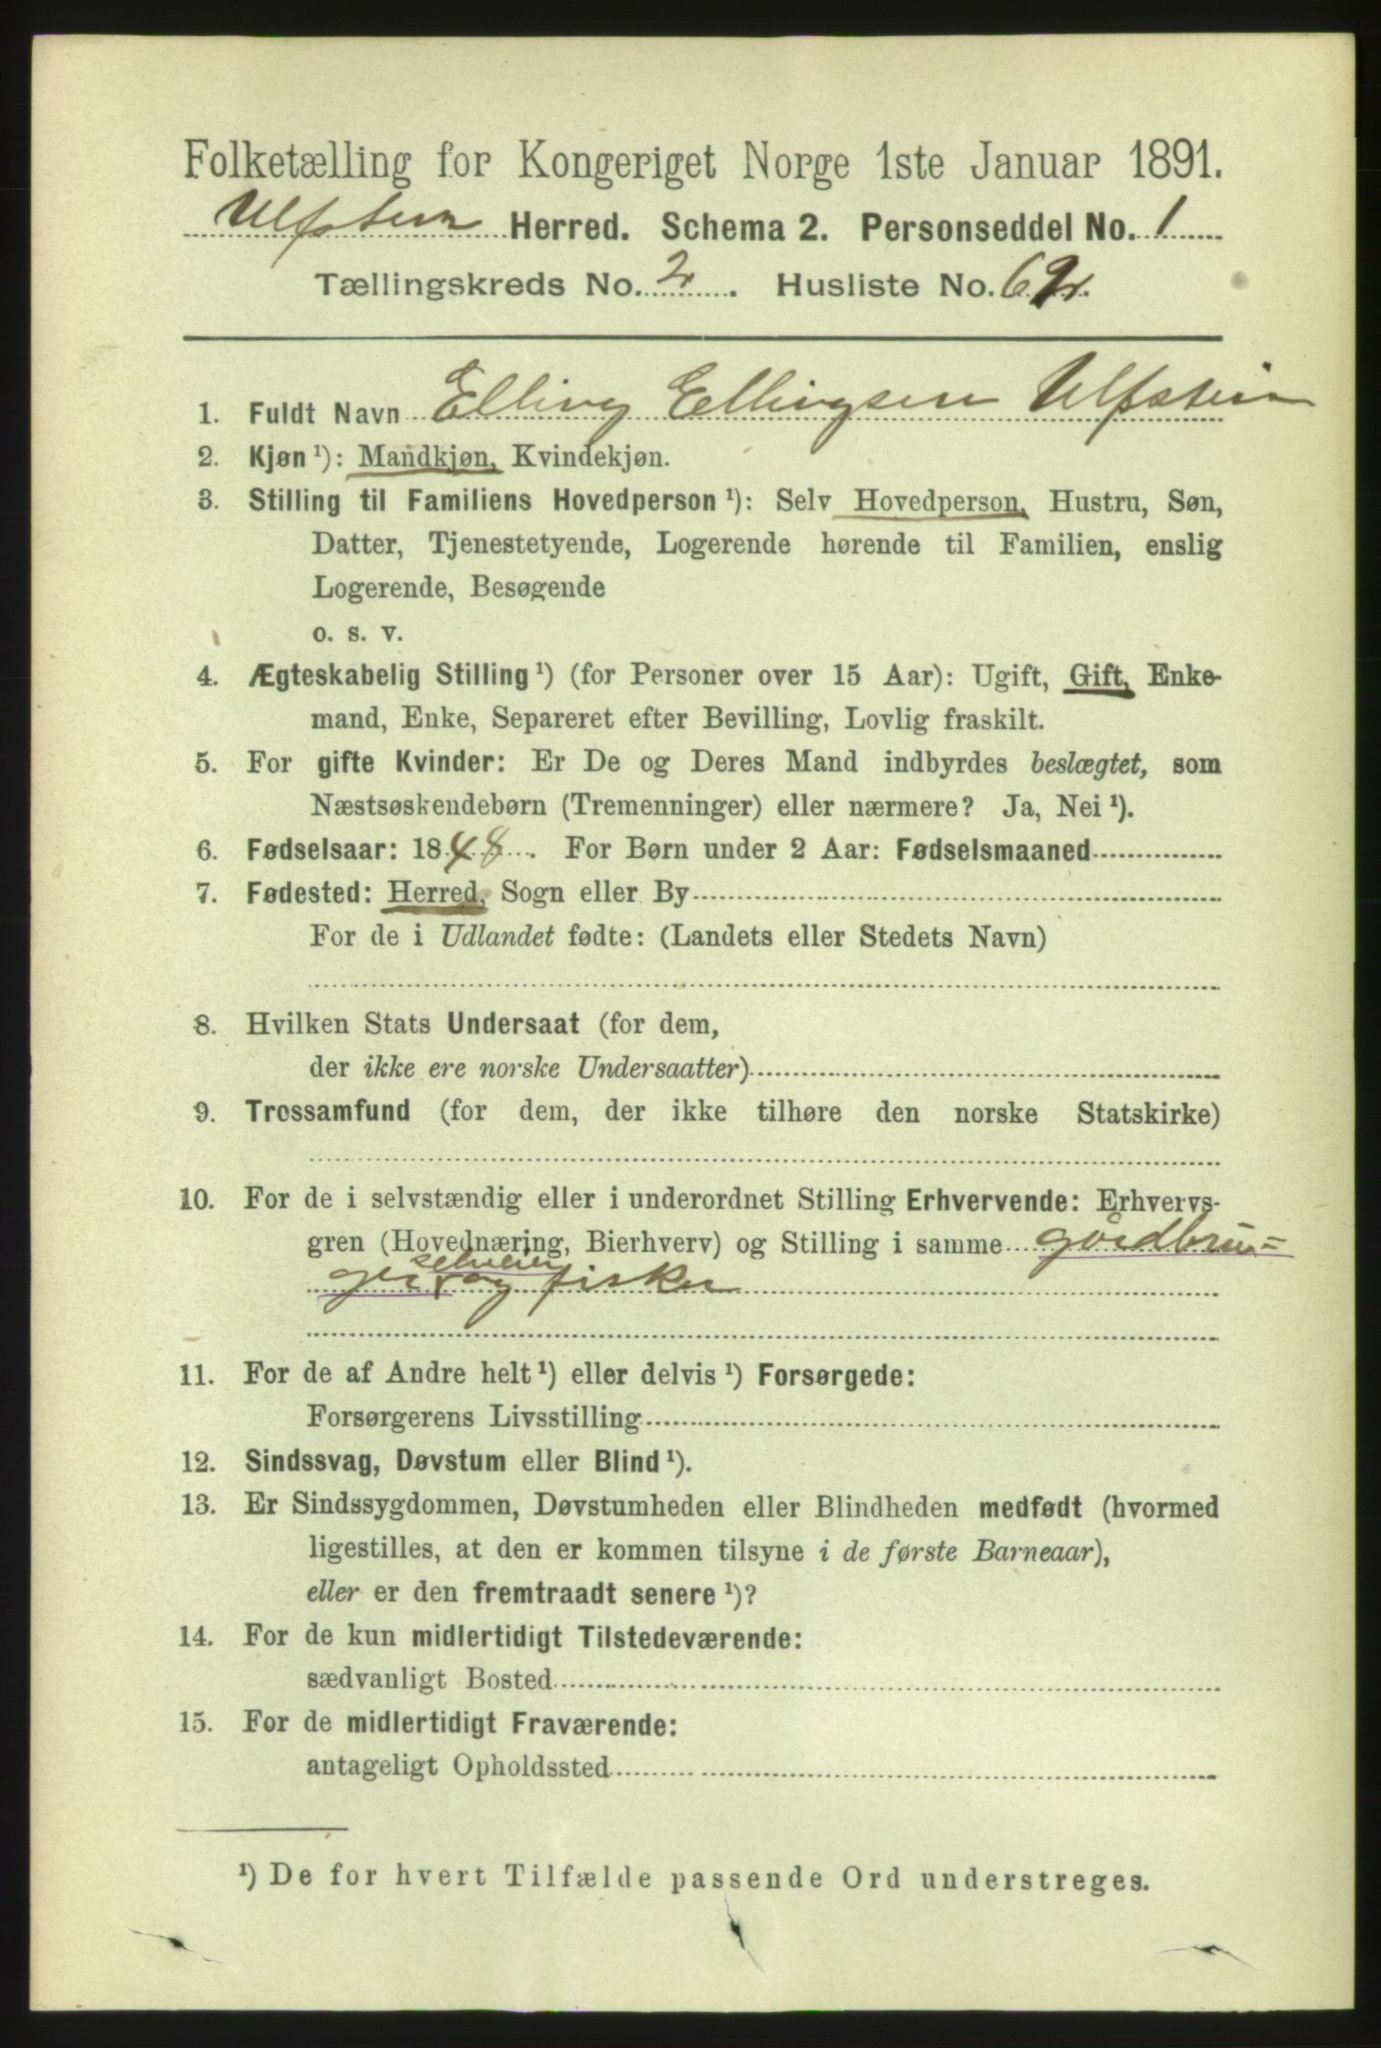 Folketælling for Kongeriget Norge 1ste Januar 1891.
Ulfsten Herred. Schema 2. Personseddel No. 1
Tællingskreds No. 2. Husliste No.
1. Fuldt Navn Elling Ellingsen Ulfstein
2. Kjøn ¹): Mandkjøn, Kvindekjøn.
3. Stilling til Familiens Hovedperson ¹): Selv Hovedperson, Hustru, Søn,
Datter, Tjenestetyende, Logerende hørende til Familien, enslig
Logerende, Besøgende
o. s. v.
4. Ægteskabelig Stilling ¹) (for Personer over 15 Aar): Ugift, Gift, Enke-
mand, Enke, Separeret efter Bevilling, Lovlig fraskilt.
5. For gifte Kvinder: Er De og Deres Mand indbyrdes beslægtet, som
Næstsøskendebørn (Tremenninger) eller nærmere? Ja, Nei ¹).
6. Fødselsaar: 1848. For Børn under 2 Aar: Fødselsmaaned
7. Fødested: Herred, Sogn eller By
For de i Udlandet fødte: (Landets eller Stedets Navn)
8. Hvilken Stats Undersaat (for dem,
der ikke ere norske Undersaatter)
9. Trossamfund (for dem, der ikke tilhøre den norske Statskirke)
10. For de i selvstændig eller i underordnet Stilling Erhvervende: Erhvervs-
gren (Hovednæring, Bierhverv) og Stilling i samme gårdbru=
selveier
ger og fisker
11. For de af Andre helt ¹) eller delvis ¹) Forsørgede:
Forsørgerens Livsstilling
12. Sindssvag, Døvstum eller Blind ¹).
13. Er Sindssygdommen, Døvstumheden eller Blindheden medfødt (hvormed
ligestilles, at den er kommen tilsyne i de første Barneaar),
eller er den fremtraadt senere ¹)?
14. For de kun midlertidigt Tilstedeværende:
sædvanligt Bosted
15. For de midlertidigt Fraværende:
antageligt Opholdssted
¹) De for hvert Tilfælde passende Ord understreges.